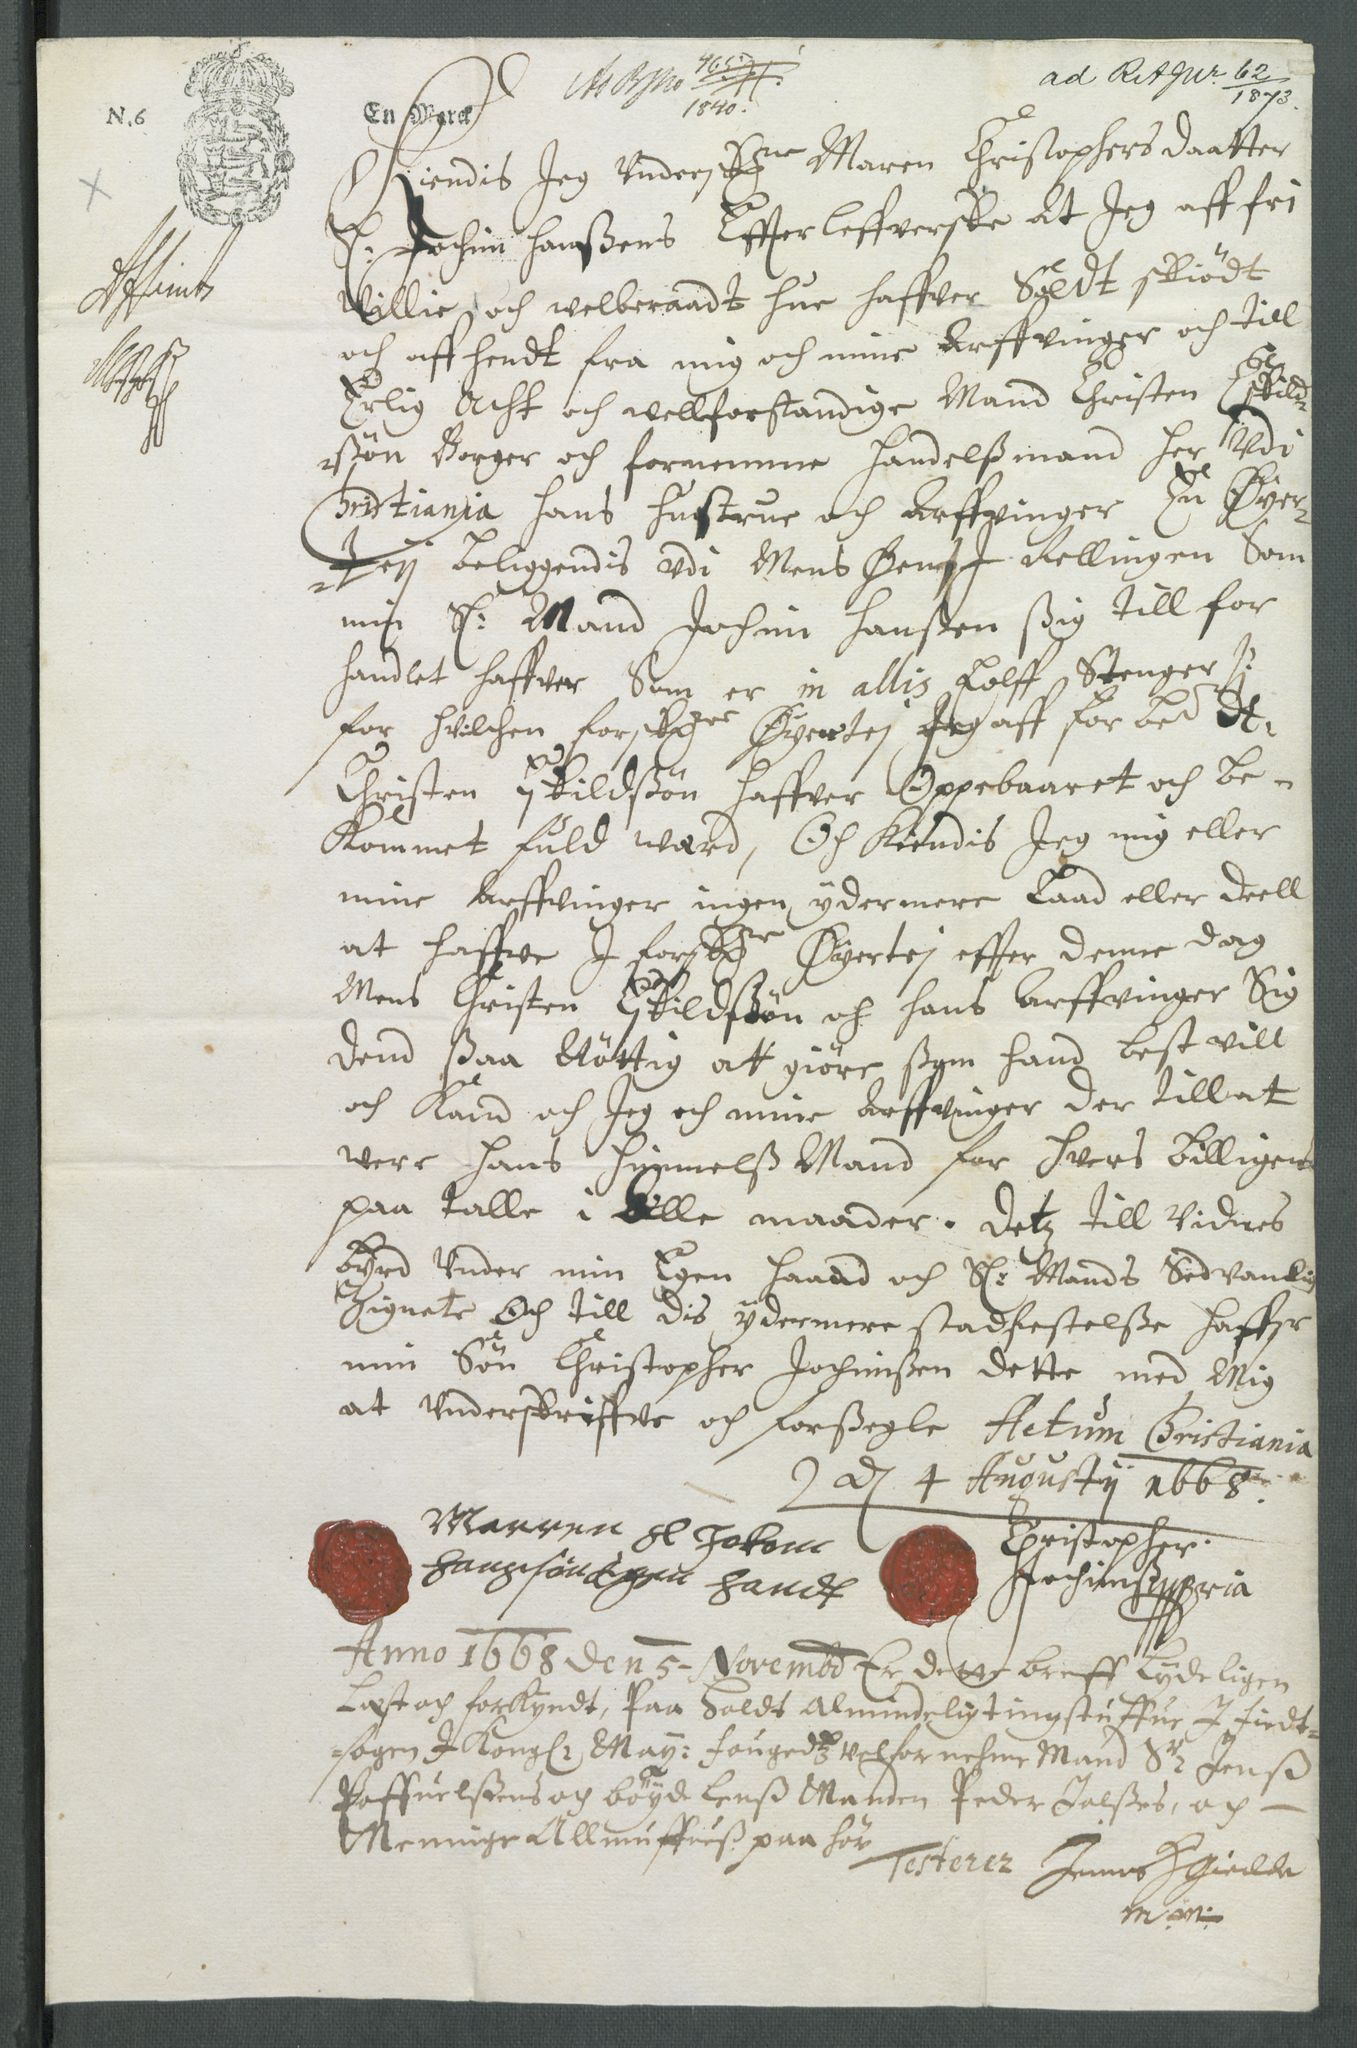 N. 6
En Marck
1840.
ad RAJnr. 62
1873.
Kiendis Jeg Underschrefne Maren Christophers daatter
Sl: Jochim Hanßens Effterleffverske At Jeg aff fri
Villie och velberaadt hue haffver Soldt skiödt
och affhendt fra mig och mine Arffvinger och till
Erlig Acht och vellforstandige Mand Christen Eskild
ßön Borger och fornemme Handelßmand her Udi
Christiania hans Hustrue och Arffvinger En Øver
teij beliggendis udi Mens I Rellingen Som
min Sl: Mand Jochim Hanßen ßig till for
handlet haffver Som er in allis Tolff Stenger
for hvilchen forschrefne Øvertej Jeg aff forbete
Christen Eskildßön haffver Oppebaaret och be-
kommet fuld werd, Och Kiendis Jeg mig eller
mine Arffvinger ingen ydermere Laad eller deell
at haffve I forschrefne Øvertej effter denne dag
Mens Christen Eskildßön och hans Arffvinger Sig
dend ßaa Nöttig at giöre ßom hand best vill
och Kand och Jeg och mine Arffvinger der till at
were hans Himmelß Mand for hvers billigens
paa talle i Alle maader. Detz till Vidnes
byrd Under min Egen Haand och Sl: Mands Sedvanlig
Zignete Och till dis ydermere stadfestelße haffver
min Sön Christopher Jochimßen dette med Mig
at Underskriffve och forßegle Actum Christiania
d 4 Augustij 1668.
Marren sl Jokom
Hanßön Egen Handt
Christopher
Jochimß
Anno 1668 den 5 Novembr Er dette breff Lydeligen
Læst och forkyndt, Paa Holdt Almindelig tingstuffue I
sogen I Kongl: May: fougedtz velfornehme Mand Sr Jenß
Poffuelßens och böyde Lenß Manden Peder och
Meninge Allmuffueß paa hör
Testerer